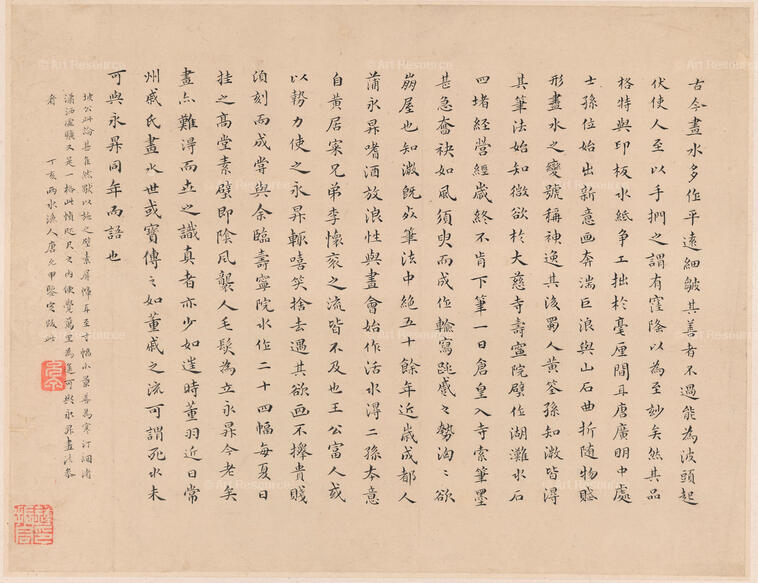 古今畫水多作平遠細皴其善者不過能為波頭起
伏使人至以手捫之謂有窪隆以為至妙矣然其品
格特與印板水紙爭工拙於毫厘間耳唐廣明中處
士孫位始出新意画奔湍巨浪與山石曲折隨物賦
形畫水之變號稱神逸其後蜀人黃筌孫知微皆得
其筆法始知微欲於大慈寺壽寧院壁作湖灘水石
四堵經營經歲終不肯下筆一日倉皇入寺索筆墨
甚急奮袂如風須臾而成作輸寫跳蹙之勢洶〻欲
崩屋也知微既歿筆法中絕五十餘年近歲成都人
蒲永昇嗜酒放浪性與畫會始作活水得二孫本意
自黃居寀兄弟李懷袞之流皆不及也王公富人或
以勢力使之永昇輒嘻笑捨去遇其欲画不擇貴賤
須刻而成嘗與余臨壽寧院水作二十四幅每夏日
挂之高堂素壁即陰風襲人毛髮為立永昇今老矣
畫亦難得而世之識真者亦少如往時董羽近日常
州戚氏畫水世或寶傳之如董戚之流可謂死水未
可與永昇同年而語也
坡公此論甚自然以施之壁素屏幛耳至寸幅小景善為寒汀烟渚
瀟洒虛曠又是一格此幀咫尺之內便覺萬里為遙可與永昇畫法參
者
丁亥雨水漁人唐允甲鑒定跋此
© Art Resource